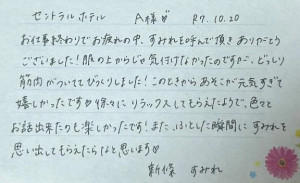 セントラルホテル A様♡ R7.10.20
お仕事終わりでお疲れの中、すみれを呼んで頂きありがとう
ございました！服の上からじゃ気付けなかったのですが、どっしり
筋肉がついててびっくりしました！このときからあそこが元気すぎて
嬉しかったです♡徐々にリラックスしてもらえたようで、色々と
お話出来たのも楽しかったです！また、ふとした瞬間にすみれを
思い出してもらえたらなと思います♡
新條 すみれ